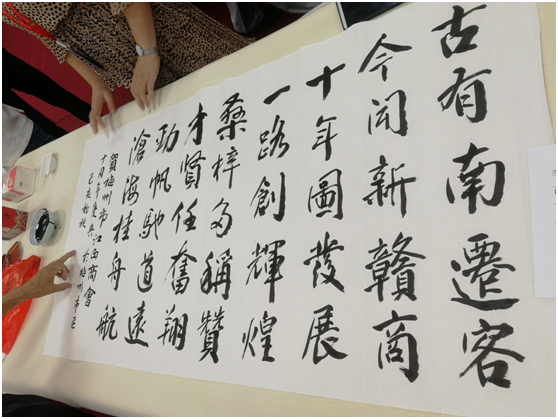 古有南遷客
今闻新贛商
十年圖發展
一路創輝煌
桑梓多稱贊
才賢任奮翔
勁帆馳道遠
滄海挂舟航
賀梅州市江西商會
十周年慶典
己亥初秋 於梅州市區